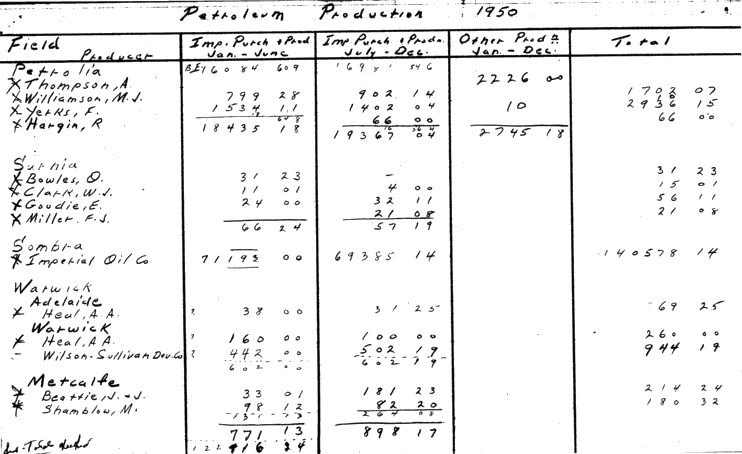 Petroleum Production 1950
Field Producer Imp. Purch + Prod Jan. - June Imp Purch + Prodn. July - Dec. Other Prod n Jan. - Dec. Total
Petrolia
X Thompson, A. 799 28 902 14 2226 00 1702 07
X Williamson, M.J. 1534 11 1402 04 10 2936 15
X Yerks, F. 66 00 66 00
X Hargin, R 18435 18 19367 04 2745 18
Sarnia
X Bowles, O. 31 23 - 31 23
X Clark, W.J. 11 01 4 00 15 01
X Goudie, E. 24 00 32 11 56 11
X Miller. F.J. 21 08 21 08
66 24 57 19
Sombra
X Imperial Oil Co 71193 00 69385 14 140578 14
Warwick
Adelaide
X Heal, A.A. ? 38 00 31 25 69 25
Warwick
X Heal, A.A ? 160 00 100 00 260 00
- Wilson-Sullivan Dev. Co ? 442 00 502 19 944 19
602 00 602 19
Metcalfe
X Beattie, J. & J. 33 01 181 23 214 24
X Shamblow, M. 98 12 82 20 180 32
771 13 898 17